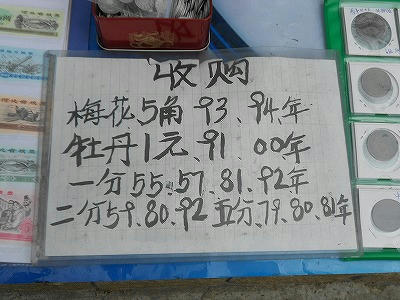 收购
梅花5角93、94年
牡丹1元、91、00年
一分55、57、81、92年
二分59、80、92 五分、79、80、81年